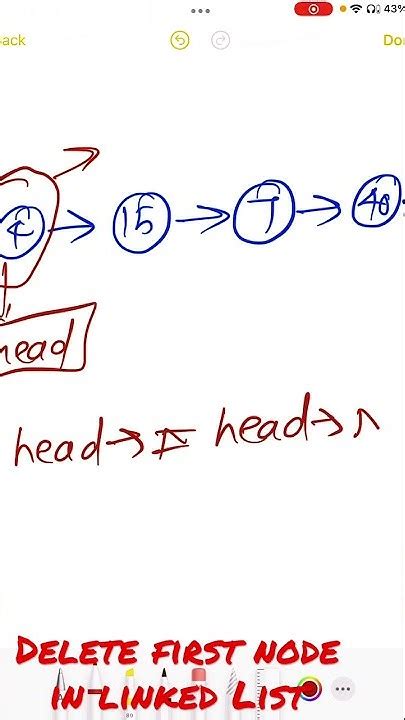 ack
Do
43%
4 → 15 → 7 → 40
head
head→ = head→
80
Delete first node
in-linked List